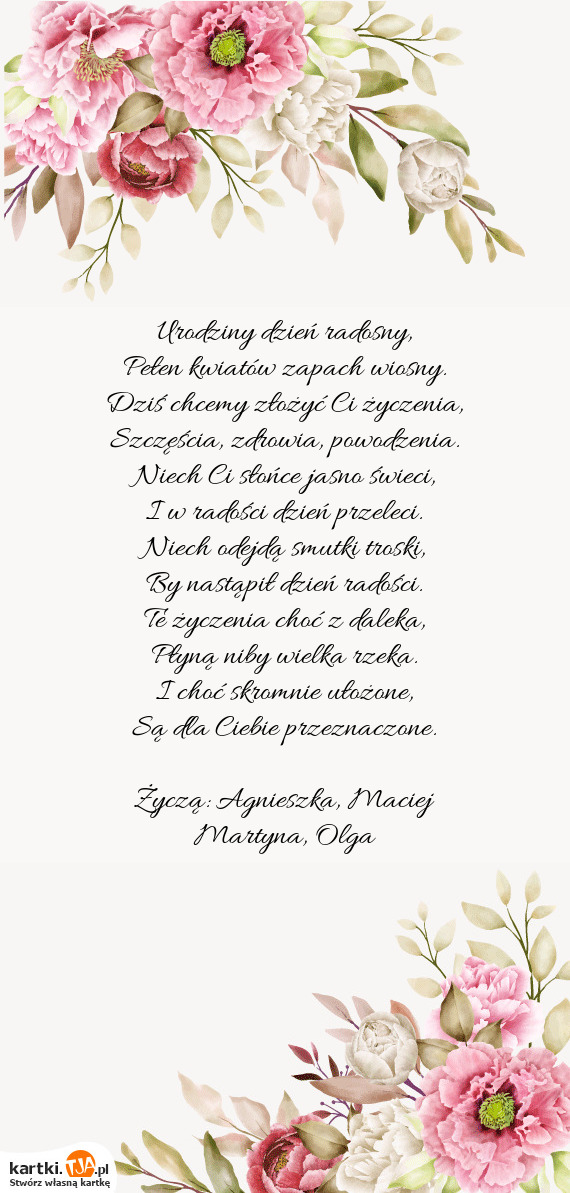 Urodziny dzień radosny,
Pełen kwiatów zapach wiosny.
Dziś chcemy złożyć Ci życzenia,
Szczęścia, zdrowia, powodzenia.
Niech Ci słońce jasno świeci,
I w radości dzień przeleci.
Niech odejdą smutki troski,
By nastąpił dzień radości.
Te życzenia choć z daleka,
Płyną niby wielka rzeka.
I choć skromnie ułożone,
Są dla Ciebie przeznaczone.
Życzą: Agnieszka, Maciej
Martyna, Olga
kartki.TJA.pl
Stwórz własną kartkę